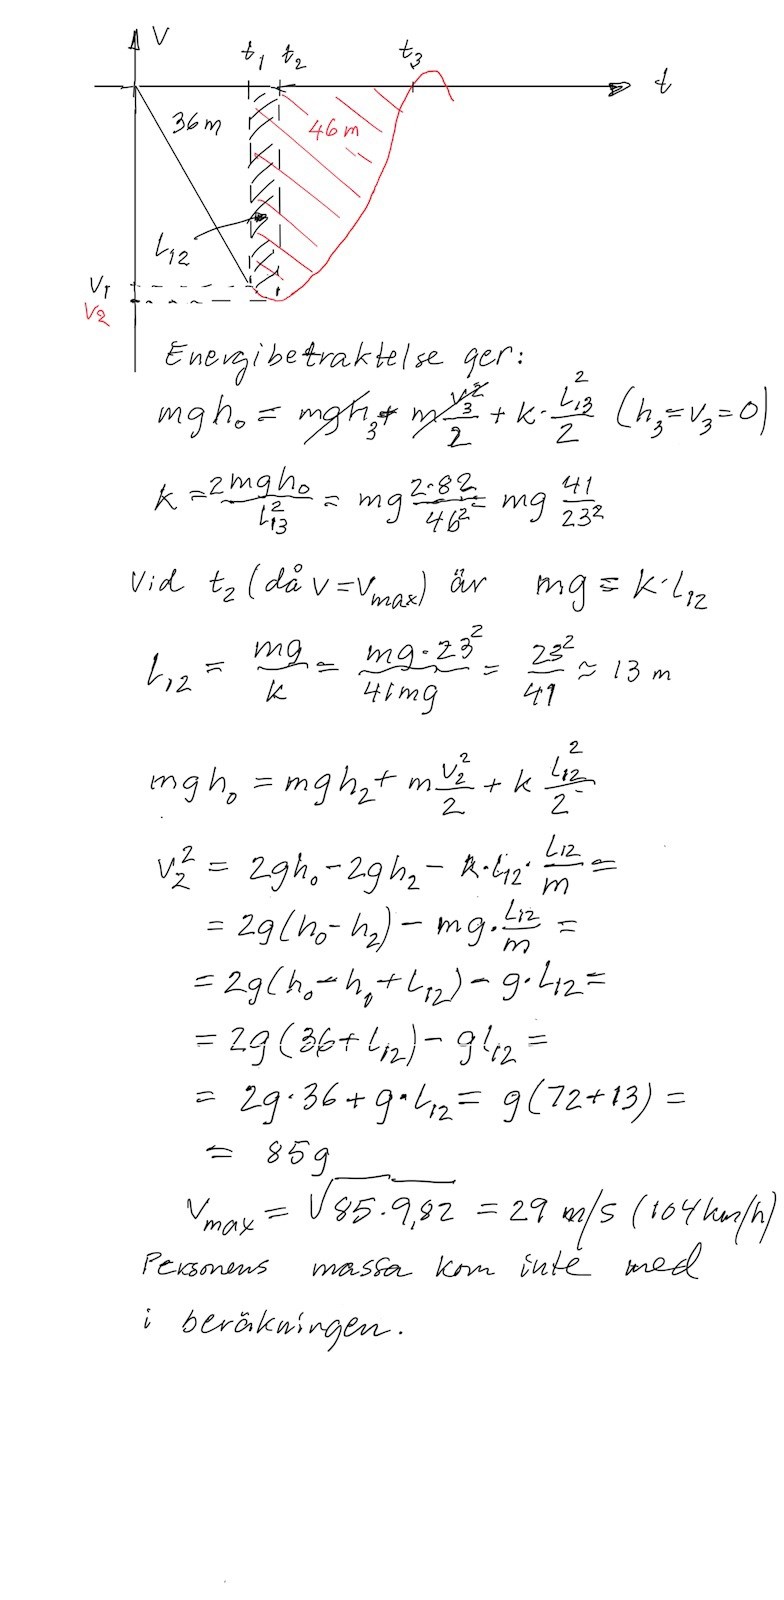 V
t₁ t₂ t₃
t
36m
46m
L₁₂
V₁
V₂
Energibetraktelse ger:
mgh₀ = mgh₃ + m v₃²/2 + k · L₁₃²/2 (h₃=v₃=0)
k = 2mgh₀/L₁₃² = mg 2·82/46² = mg 41/23²
Vid t₂ (då v=v_max) är mg = k·L₁₂
L₁₂ = mg/k = mg·23²/41mg = 23²/41 ≈ 13 m
mgh₀ = mgh₂ + m v₂²/2 + k L₁₂²/2
v₂² = 2gh₀ - 2gh₂ - k·L₁₂· L₁₂/m =
= 2g(h₀-h₂) - mg· L₁₂/m =
= 2g(h₀-h₁+L₁₂) - g·L₁₂ =
= 2g(36+L₁₂) - gL₁₂ =
= 2g·36 + g·L₁₂ = g(72+13) =
= 85g
V_max = √85·9,82 = 29 m/s (104 km/h)
Personens massa kom inte med
i beräkningen.